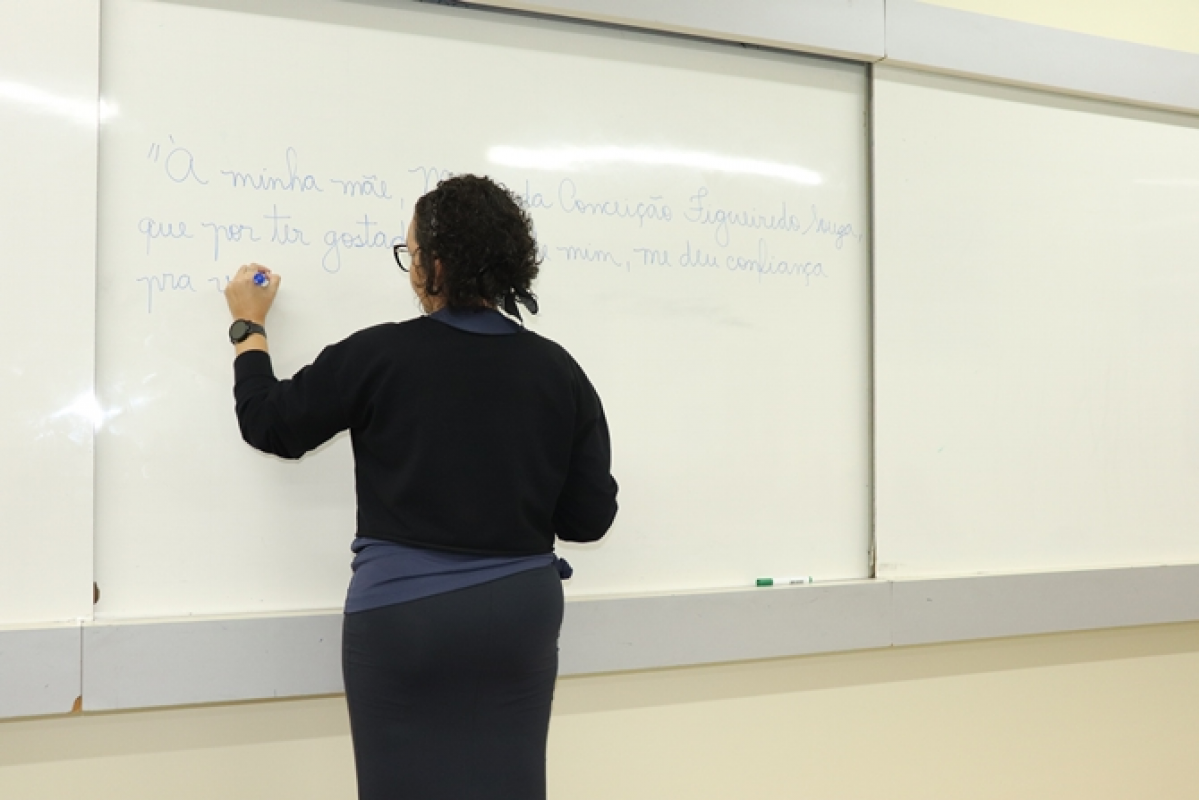 "À minha mãe, da Conceição Figueiredo Souza,
que por ter gostad mim, me deu confiança
pra